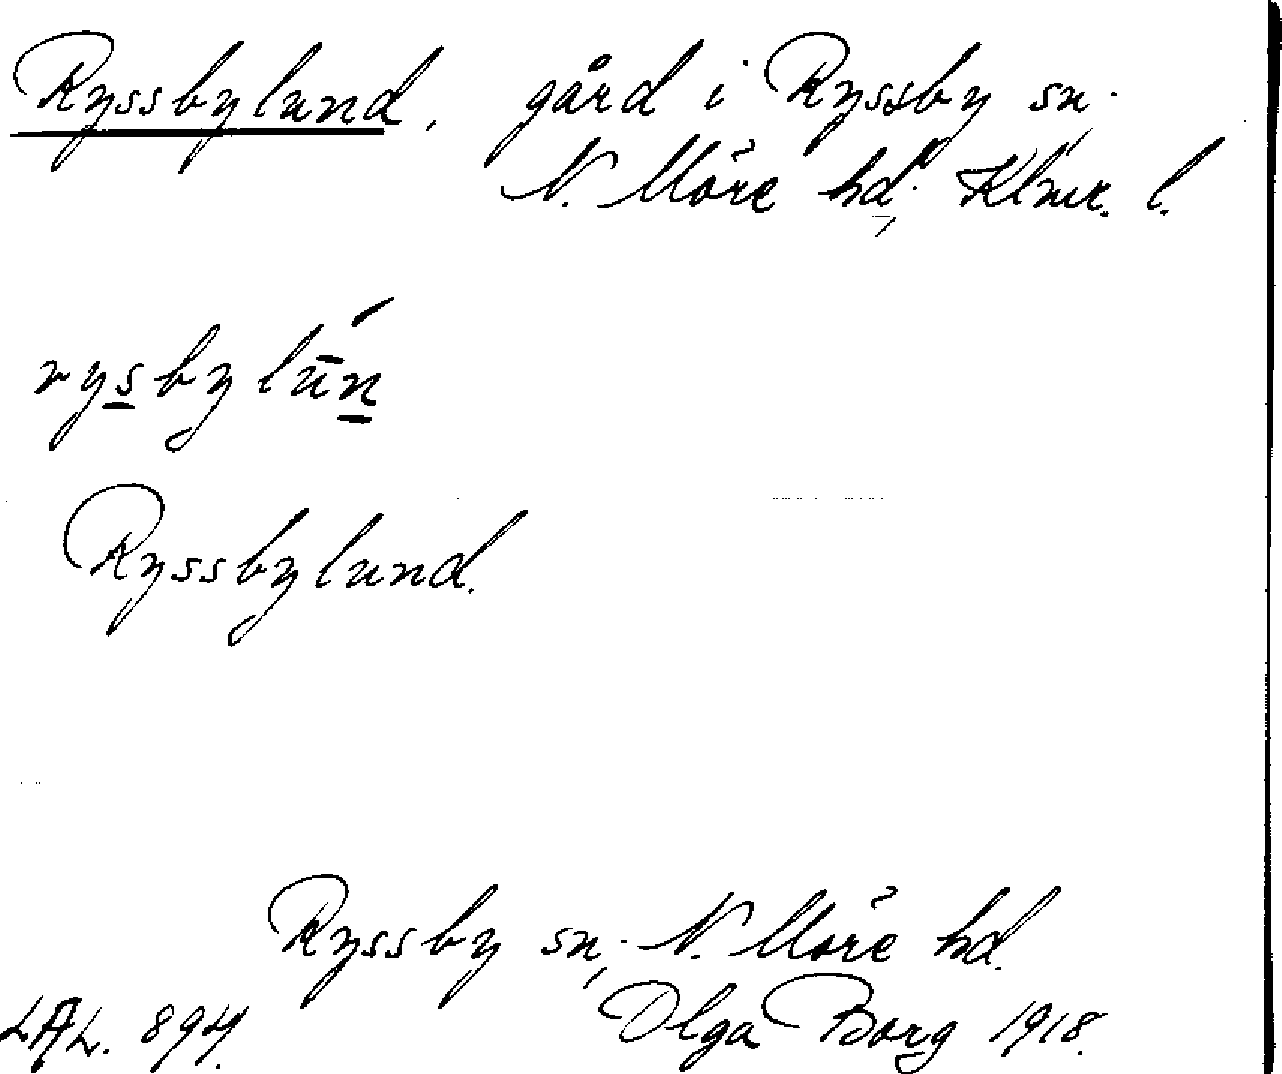 Ryssbylund, gård i Ryssby sn.
N. Möre hd, Klmr. l.
rysbylūń
Ryssbylund.
Ryssby sn, N. Möre hd.
LAL. 894. Olga Borg 1918.